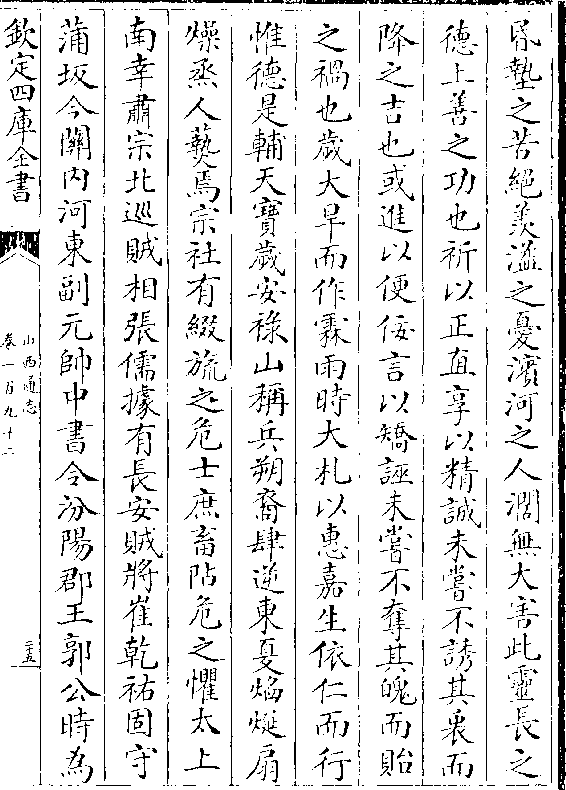 昏墊之苦絕羨溢之憂濱河之人濶無大害此靈長之
德上善之功也祈以正直享以精誠未嘗不誘其衷而
降之吉也或進以便佞言以矯誣未嘗不奪其魄而貽
之禍也歲大旱而作霖雨時大札以惠嘉生依仁而行
惟德是輔天寶歲安祿山稱兵朔裔肆逆東夏焰烻扇
燥烝人爇焉宗社有綴旒之危士庶畜阽危之懼太上
南幸肅宗北巡賊相張儒據有長安賊將崔乾祐固守
蒲坂今關内河東副元帥中書令汾陽郡王郭公時為
欽定四庫全書
山西通志
卷一百九十二
二五